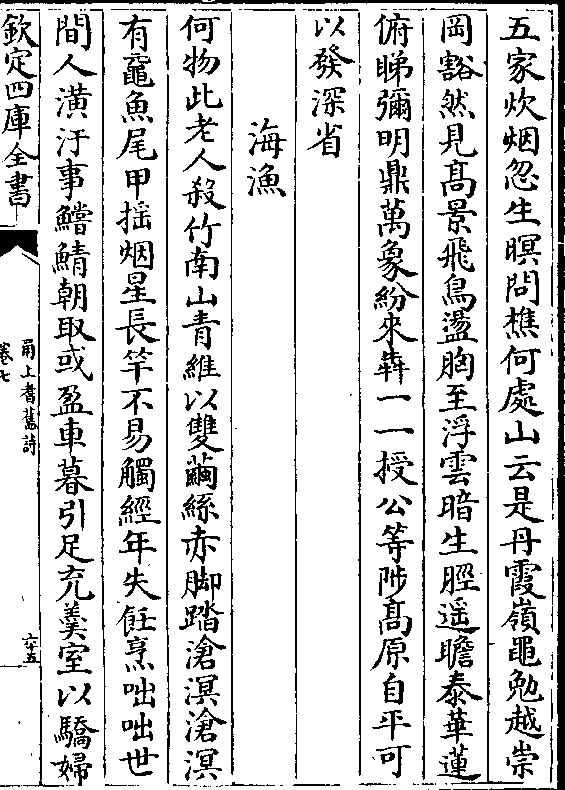 五家炊烟忽生暝問樵何處山云是丹霞嶺黽勉越崇
岡豁然見髙景飛鳥盪胸至浮雲暗生脛遥瞻泰華蓮
俯睇彌明鼎萬象紛來犇一一授公等陟髙原自平可
以發深省
海漁
何物此老人殺竹南山青維以雙繭絲赤脚踏滄溟滄溟
有黿魚尾甲揺烟星長竿不易觸經年失飪烹咄咄世
間人潢汙事鱨鯖朝取或盈車暮引足充羮室以驕婦
欽定四庫全書
甬上耆舊詩
卷七
六十五